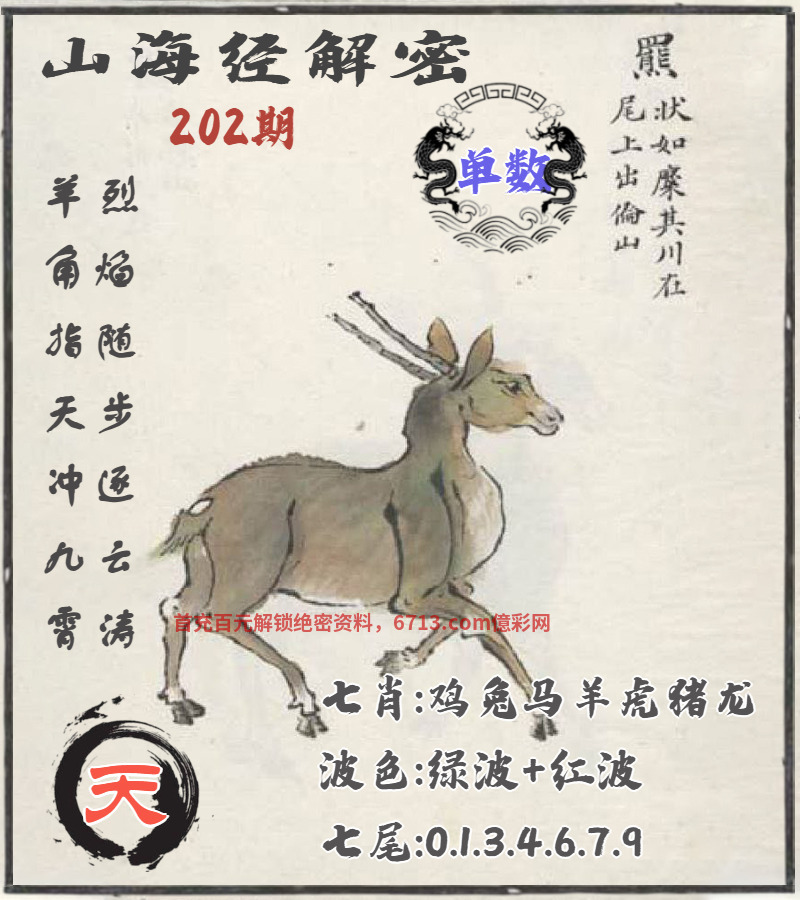 山海经解密
202期
羆
状如麋其川在
尾上出倫山
单数
烈焰随步逐云涛
羊角指天冲九霄
首充百元解锁绝密资料，6713.com億彩网
七肖:鸡兔马羊虎猪龙
波色:绿波+红波
七尾:0.1.3.4.6.7.9
天